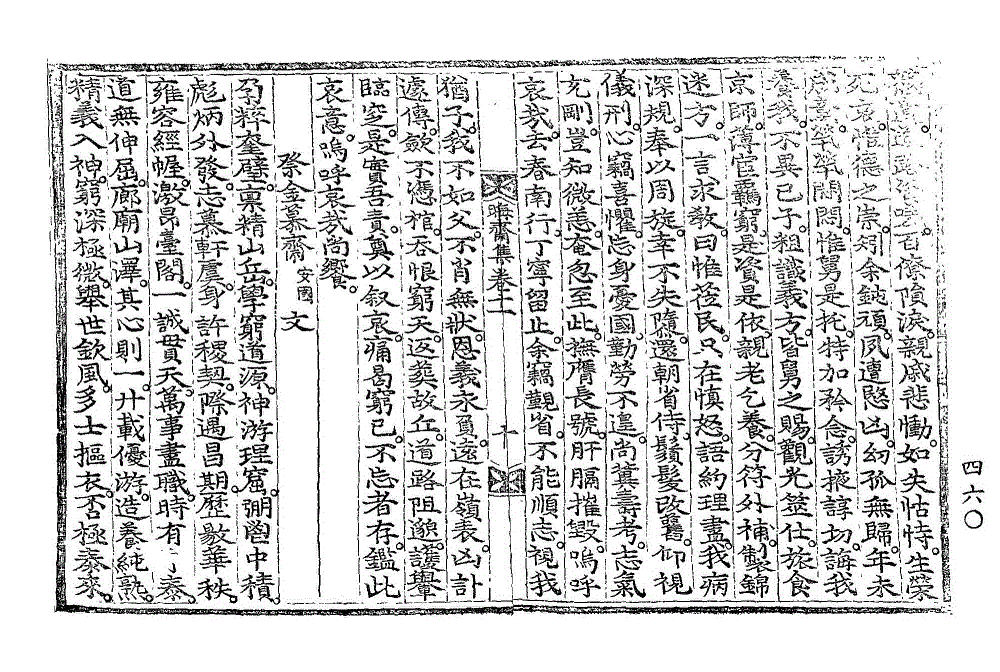 百僚隕淚親戚悲慟如失怙恃生榮
死哀惟德之崇矧余鈍頑夙遭愍凶幼孤無歸年未
惟舅是托特加矜念誘掖諄切誨我
養我不異已子粗識義方皆舅之賜觀光筮仕旅食
京師薄官羈窮是資是依親老乞養分符外補製錦
迷方一言求教曰惟莅民只在慎怒語約理盡我病
深規奉以周旋幸不失隳還朝省侍鬚髮改舊仰視
儀刑心竊喜懼忘身憂國勤勞不遑尚冀壽考志氣
克剛豈知微恙奄忽至此撫膺長號肝膈摧毀嗚呼
哀哉去春南行丁寧留止余竊覲省不能順志視我
文 晦齋集卷十一 十
猶子我不如父不肖無狀恩義永負遠在嶺表凶訃
遽傳斂不憑棺吞恨窮天返葬故丘道路阻邈護轝
臨穸是實吾責奠以叙哀痛曷窮已不忘者存鑑此
哀意嗚呼哀哉尚饗
祭金慕齋 安國 文
孕粹奎璧稟精山岳學窮道源神游理窟弸啚中積
彪炳外發志慕軒虞身許稷契際遇昌期歷敭華秩
雍容經幄激昂臺閣一誠貫天萬事盡職時有 泰
道無伸屈廊廟山澤其心則一廾載優游造養純熟
精義入神窮深極微舉世欽風多士摳衣否極泰來
四六〇